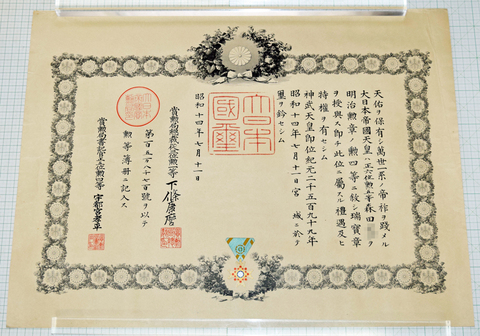 天佑ヲ保有シ萬世一系ノ帝祚ヲ踐メル
大日本帝國天皇ハ正六位勲五等森田 ヲ
明治勲章ノ勲四等ニ敍シ瑞寶章
ヲ授與ス即チ此位ニ屬スル禮遇及ヒ
特權ヲ有セシム
神武天皇即位紀元二千五百九十九年
昭和十四年七月十一日宮城ニ於テ
璽ヲ鈐セシム
大日本國璽
昭和十四年七月十一日
賞勲局總裁從三位勲一等下條康麿
第百五万八十七百號ヲ以テ
勲等簿冊ニ記入ス
賞勲局書記官正五位勲四等宇都宮孝平